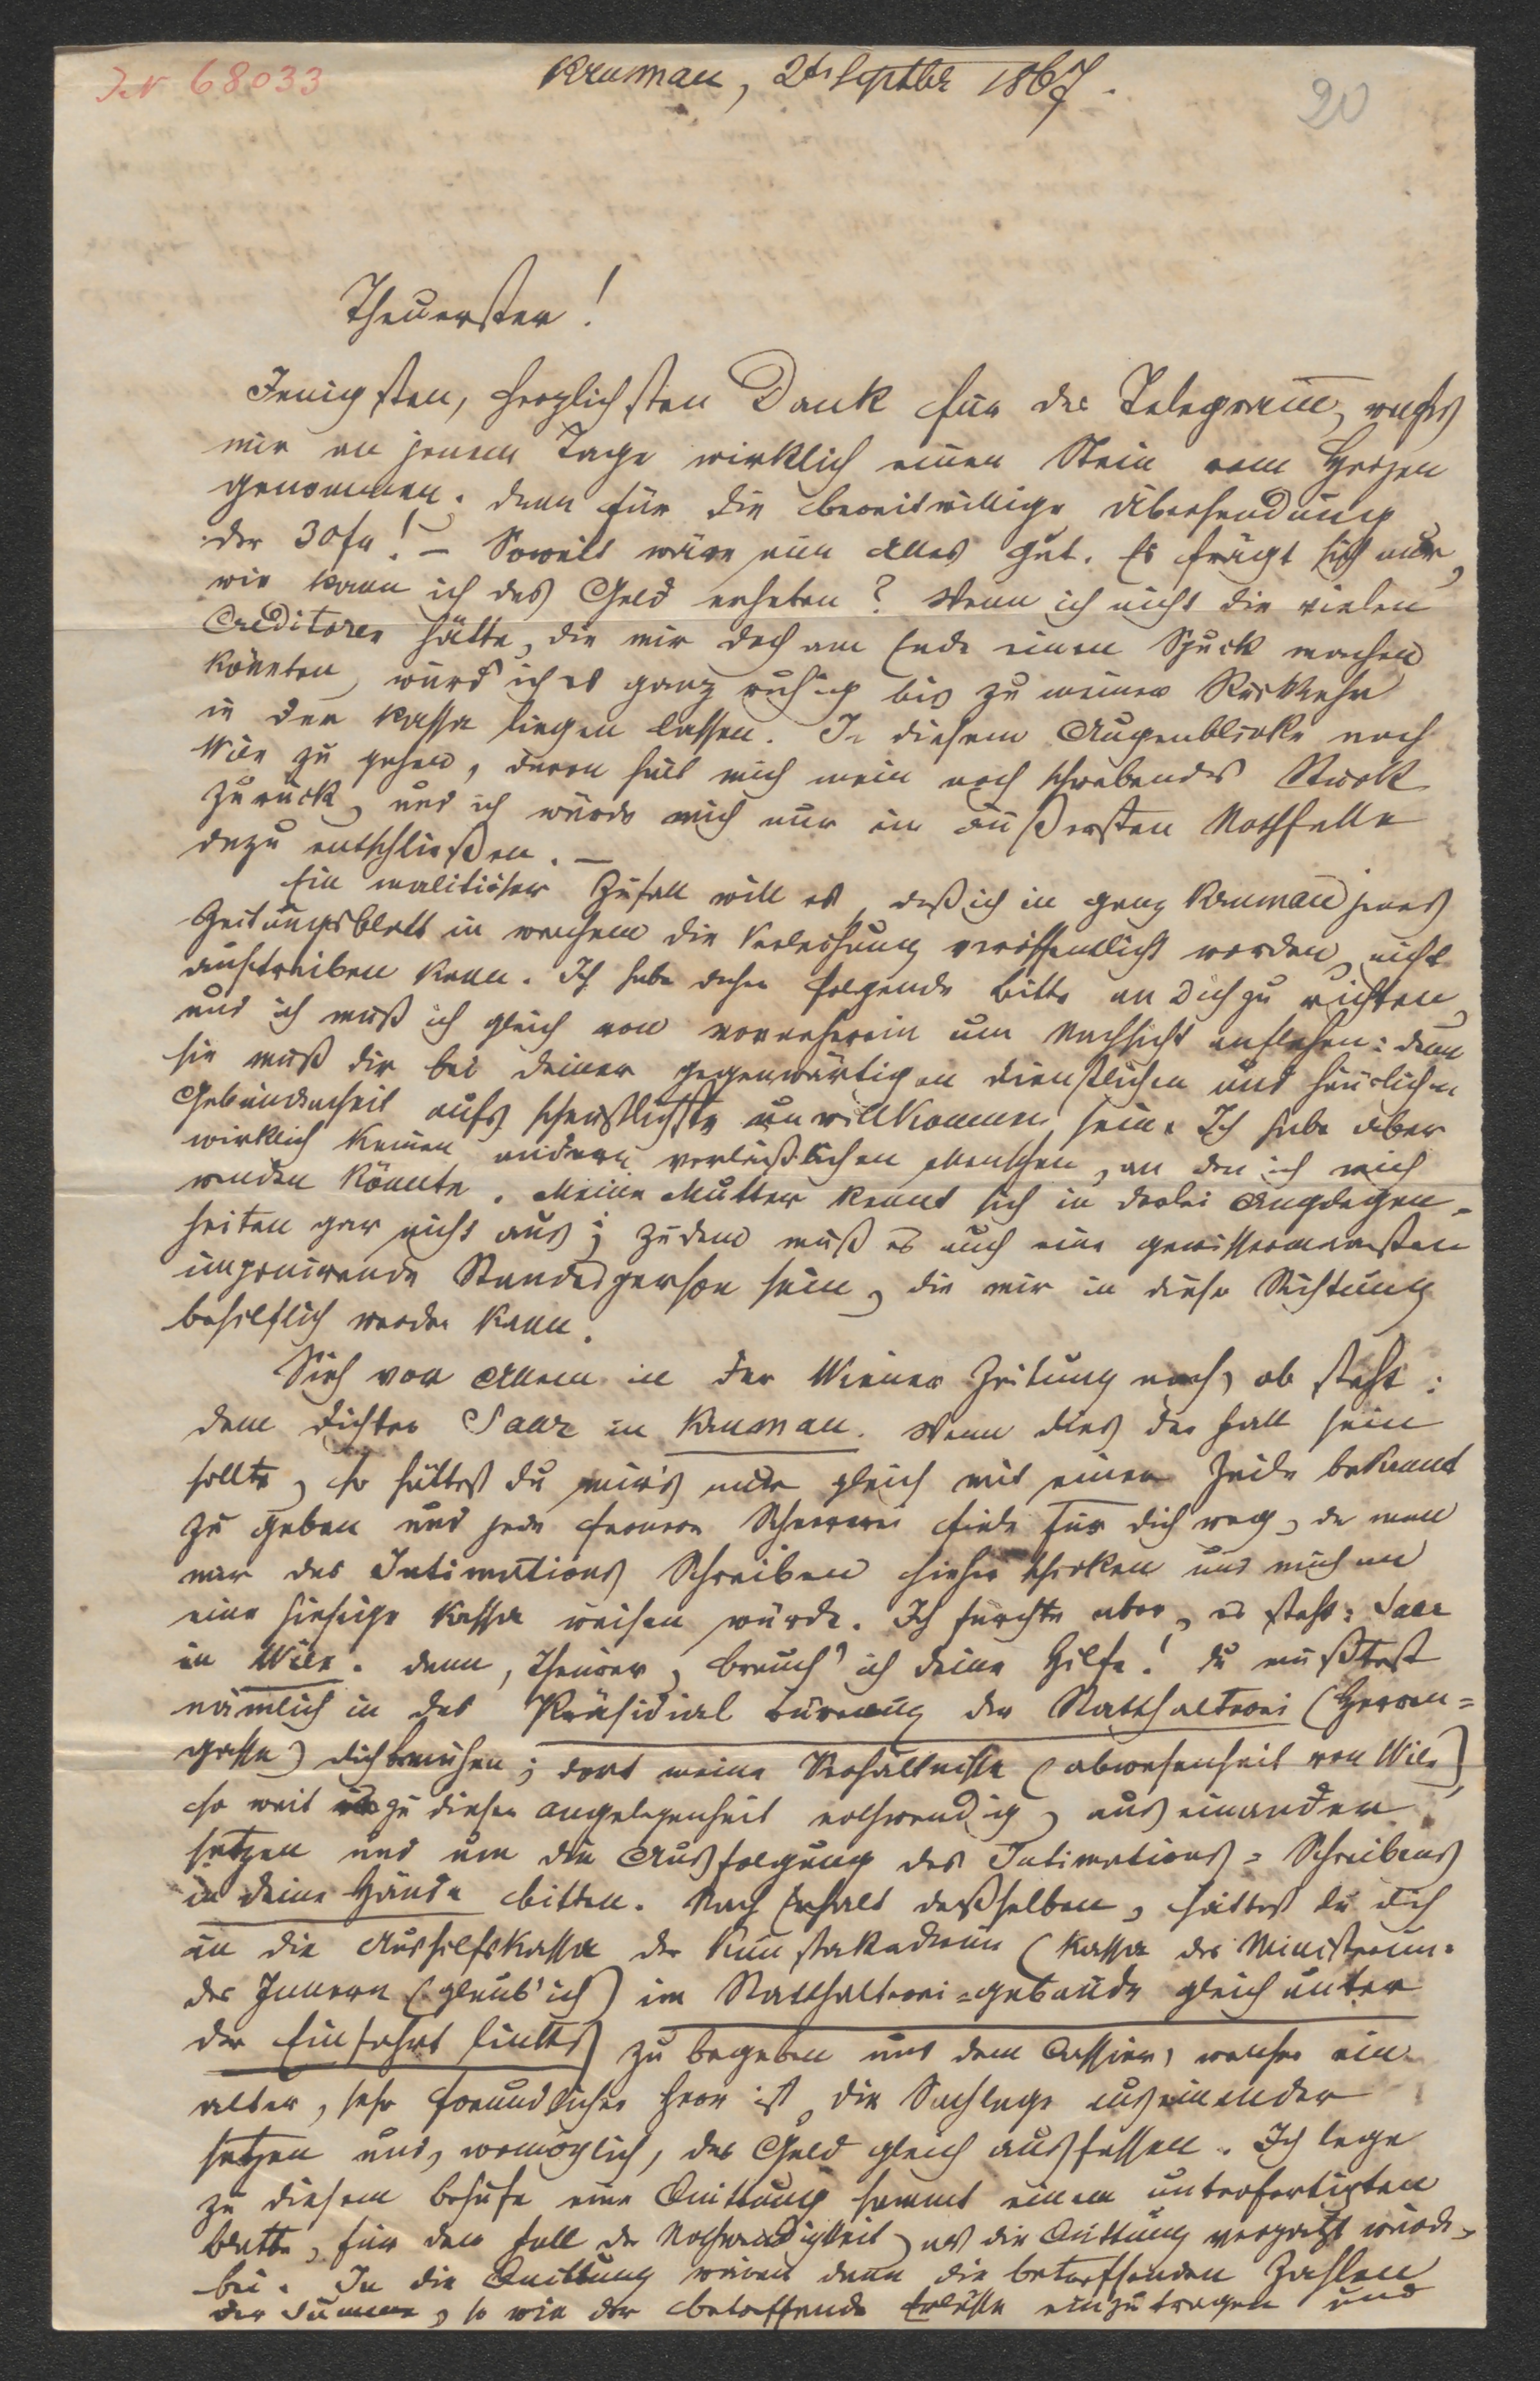 J.N 68033
Krumau, 2t Septbr 1867.
20
Theuerster!
Innigsten, herzlichsten Dank für das Telegramm, welches
mir an jenem Tage wirklich einen Stein vom Herzen
genommen. Dann für die bereitwillige Übersendung
der 30 fn! – Soweit wäre nun Alles gut. Es frägt sich nur,
wie kann ich das Geld erheben? Wenn ich nicht die vielen
Creditoren hätte, die mir doch am Ende einen Spuck machen
könnten, würd' ich es ganz ruhig bis zu meiner Rückkehr
in der Kassa liegen lassen. In diesem Augenblicke nach
Wien zu gehen, davon hält mich mein noch schwebendes Stück
zurück, und ich würde mich nur im äußersten Nothfalle
dazu entschließen. –
Ein malitiöser Zufall will es, daß ich in ganz Krumau jenes
Zeitungsblatt in welchem die Verleihung veröffentlicht worden, nicht
auftreiben kann. Ich habe daher folgende Bitte an Dich zu richten,
und ich muß ich gleich von vorneherein um Nachsicht anflehen: denn
sie muß dir bei deiner gegenwärtigen dienstlichen und häuslichen
Gebundenheit aufs scheußlichste unwillkommen sein. Ich habe aber
wirklich keinen andern verläßlichen Menschen, an den ich mich
wenden könnte. Meine Mutter kennt sich in derlei Angelegen-
heiten gar nicht aus; zudem muß es auch eine gewissermaßen
imponirende Standesperson sein, die mir in dieser Richtung
behilflich werden kann.
Sieh vor Allem in der Wiener Zeitung nach, ob steht:
dem Dichter Saar in Krumau. Wenn dies der Fall sein
sollte, so hättest du mir's nur gleich mit einer Zeile bekannt
zu geben und jede fernere Schererei fiele für dich weg, da man
mir das Intimations Schreiben hieher schicken und mich an
eine hiesige Kassa weisen würde. Ich fürchte aber, es steht: Saar
in Wien. Dann, Theurer, brauch' ich deine Hilfe! Du müßtest
nämlich in das Präsidial Bureau der Statthalterei (Herren=
gasse) dich bemühen; dort meine Verhältnisse (Abwesenheit von Wien)
so weit zu dieser Angelegenheit nothwendig, auseinander
setzen und um die Ausfolgung des Intimations=Schreibens
in deine Hände bitten. Nach Erhalt deßselben, hättest du dich
an die Aushilfskassa der Kunstakademie (Kassa des Ministerium=
des Innern (glaub' ich) im Statthalterei=gebäude gleich unter
der Einfahrt links) zu begeben und dem Cassier, welcher ein
alter, sehr freundlicher Herr ist, die Sachlage auseinander
setzen und, womöglich, das Geld gleich ausfassen. Ich lege
zu diesem Behufe eine Quittung sammt einem unterfertigten
Blatte, für den Fall der Nothwendigkeit, als die Quittung verpatzt würde,
bei. In die Quittung wären dann die betreffenden Zahlen
der Summe, so wie der betreffende Erlässe einzutragen und